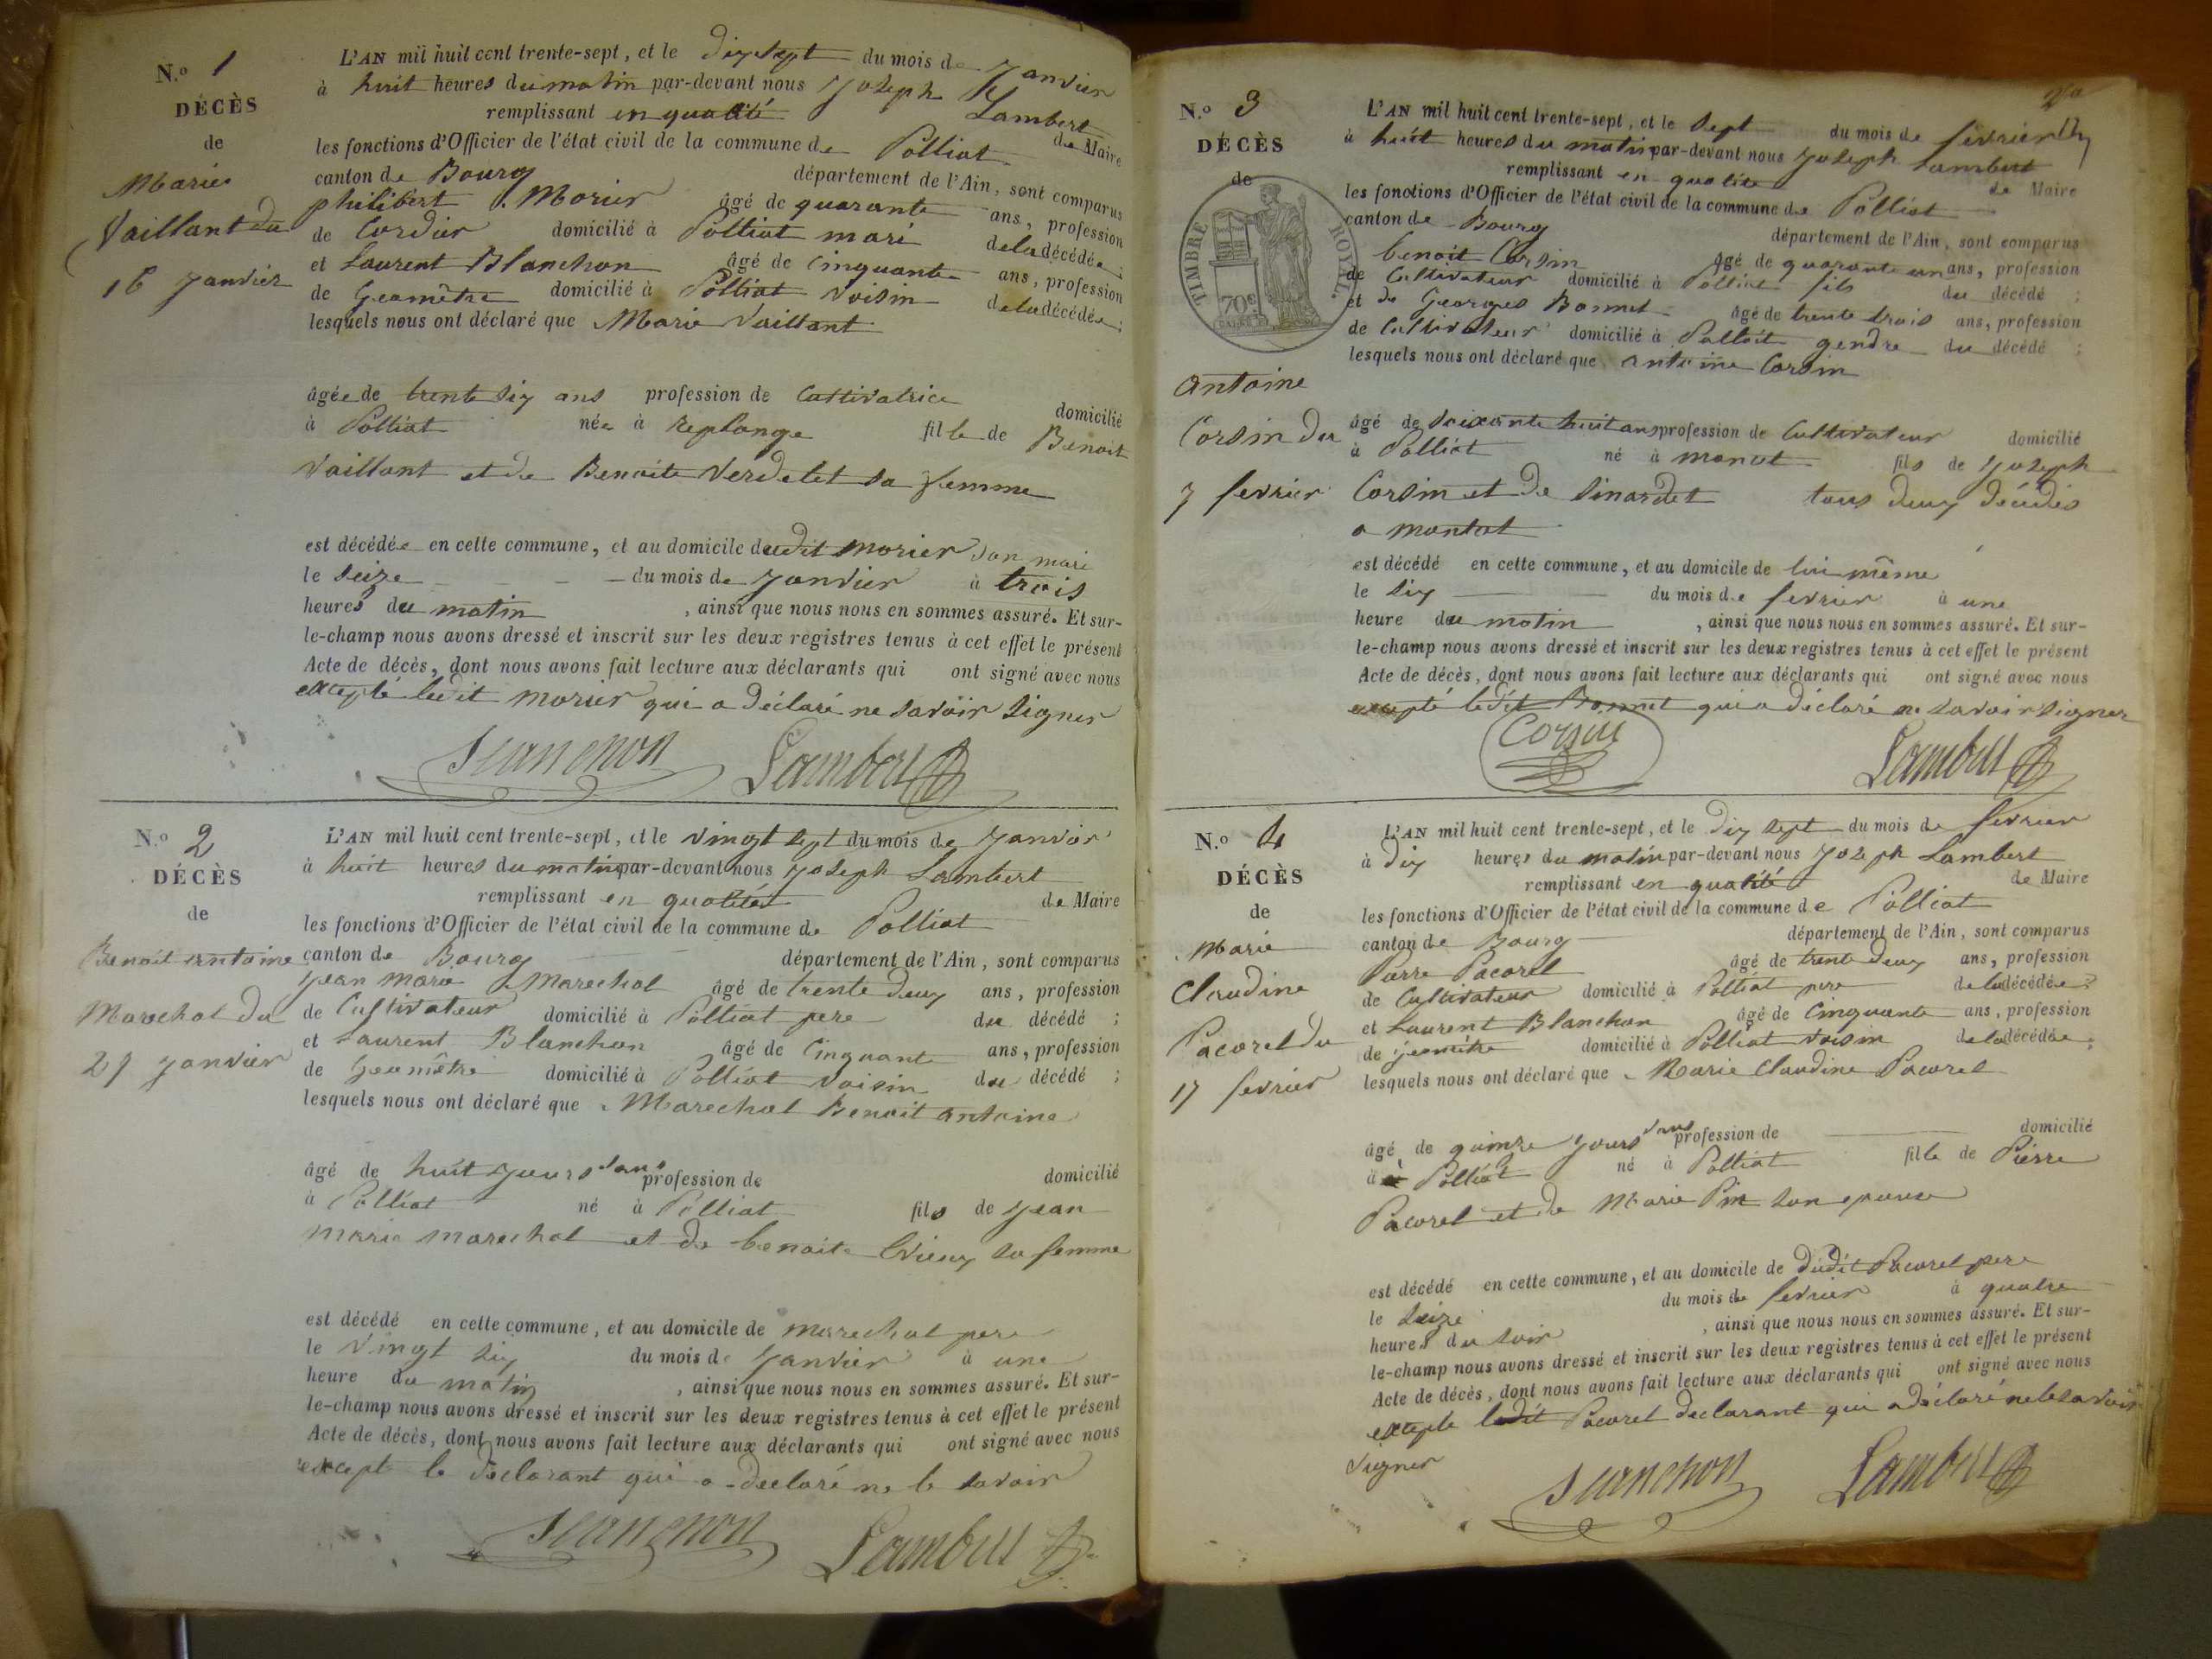 N.o 1
DÉCÈS
de
Marie
Vaillant du
16 Janvier
L'AN mil huit cent trente-sept, et le dix sept du mois de Janvier
à huit heures du matin par-devant nous Joseph Lambert
remplissant en qualité de Maire
les fonctions d'Officier de l'état civil de la commune de Polliat
canton de Bourg département de l'Ain, sont comparus
philibert Morier âgé de quarante ans, profession
de Cordier domicilié à Polliat mari de la décédée;
et Laurent Blanchon âgé de Cinquante ans, profession
de Geomètre domicilié à Polliat Voisin de la décédée;
lesquels nous ont déclaré que Marie Vaillant
âgée de trente six ans profession de Cultivatrice domicilié
à Polliat née à Replonge fille de Benoit
Vaillant et de Benoite Verdelet sa femme
est décédée en cette commune, et au domicile dudit Morier son mari
le Seize du mois de Janvier à trois
heures du matin, ainsi que nous nous en sommes assuré. Et sur-
le-champ nous avons dressé et inscrit sur les deux registres tenus à cet effet le présent
Acte de décès, dont nous avons fait lecture aux déclarants qui ont signé avec nous
excepté ledit Morier qui a déclaré ne savoir signer
Blanchon Lambert
N.o 2
DÉCÈS
de
Benoit Antoine
Marechal du
27 Janvier
L'AN mil huit cent trente-sept, et le Vingt Sept du mois de Janvier
à huit heures du matin par-devant nous Joseph Lambert
remplissant en qualité de Maire
les fonctions d'Officier de l'état civil de la commune de Polliat
canton de Bourg département de l'Ain, sont comparus
Jean Marie Marechal âgé de trente deux ans, profession
de Cultivateur domicilié à Polliat pere du décédé;
et Laurent Blanchon âgé de Cinquante ans, profession
de Geomètre domicilié à Polliat Voisin du décédé;
lesquels nous ont déclaré que Marechal Benoit antoine
âgé de huit Jours sans profession de domicilié
à Polliat né à Polliat fils de Jean
Marie Marechal et de benoite sa femme
est décédé en cette commune, et au domicile de Marechal pere
le Vingt Six du mois de Janvier à une
heure du matin, ainsi que nous nous en sommes assuré. Et sur-
le-champ nous avons dressé et inscrit sur les deux registres tenus à cet effet le présent
Acte de décès, dont nous avons fait lecture aux déclarants qui ont signé avec nous
excepte le declarant qui a declaré ne le savoir
Blanchon Lambert
N.o 3
DÉCÈS
de
TIMBRE ROYAL.
70c
Antoine
Corsin du
7 fevrier
L'AN mil huit cent trente-sept, et le Sept du mois de fevrier
à huit heures du matin par-devant nous Joseph Lambert
remplissant en qualité de Maire
les fonctions d'Officier de l'état civil de la commune de Polliat
canton de Bourg département de l'Ain, sont comparus
benoit Corsin âgé de quarante un ans, profession
de Cultivateur domicilié à Polliat fils du décédé;
et de Georges Bonnet âgé de trente trois ans, profession
de Cultivateur domicilié à Polliat gendre du décédé;
lesquels nous ont déclaré que antoine Corsin
âgé de Soixante huit ans profession de Cultivateur domicilié
à Polliat né à fils de Joseph
Corsin et de Sinardet tous deux décédés
a
est décédé en cette commune, et au domicile de lui même
le Six du mois de fevrier à une
heure du matin, ainsi que nous nous en sommes assuré. Et sur-
le-champ nous avons dressé et inscrit sur les deux registres tenus à cet effet le présent
Acte de décès, dont nous avons fait lecture aux déclarants qui ont signé avec nous
excepté ledit Bonnet qui a déclaré ne savoir signer
Corsin Lambert
N.o 4
DÉCÈS
de
Marie
Claudine
Pacoret du
17 fevrier
L'AN mil huit cent trente-sept, et le dix sept du mois de fevrier
à dix heures du matin par-devant nous Joseph Lambert
remplissant en qualité de Maire
les fonctions d'Officier de l'état civil de la commune de Polliat
canton de Bourg département de l'Ain, sont comparus
Pierre Pacoret âgé de trente deux ans, profession
de Cultivateur domicilié à Polliat pere de la décédée;
et Laurent Blanchon âgé de Cinquante ans, profession
de Geomètre domicilié à Polliat Voisin de la décédée;
lesquels nous ont déclaré que Marie Claudine Pacoret
âgé de quinze Jours sans profession de domicilié
à Polliat né à Polliat fille de Pierre
Pacoret et de Marie Pin son epouse
est décédé en cette commune, et au domicile de dudit Pacoret pere
le Seize du mois de fevrier à quatre
heures du soir, ainsi que nous nous en sommes assuré. Et sur-
le-champ nous avons dressé et inscrit sur les deux registres tenus à cet effet le présent
Acte de décès, dont nous avons fait lecture aux déclarants qui ont signé avec nous
excepte ledit Pacoret declarant qui a déclaré ne le savoir
signer
Blanchon Lambert